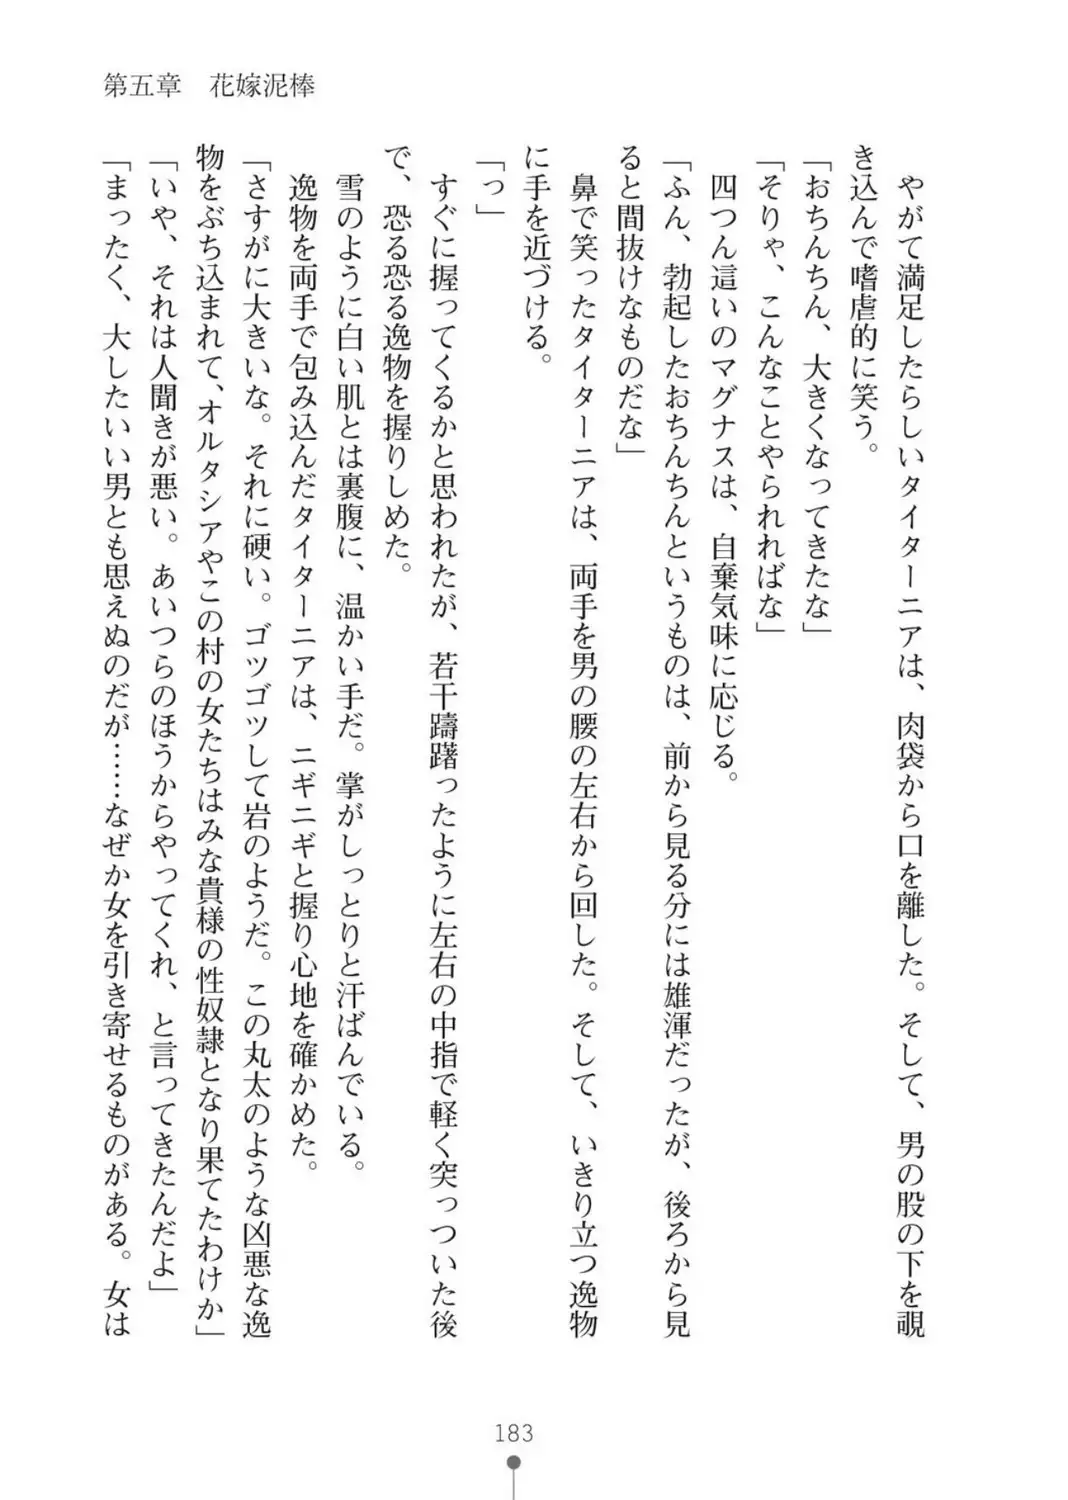 第五章　花嫁泥棒
　やがて満足したらしいタイターニアは、肉袋から口を離した。そして、男の股の下を覗
き込んで嗜虐的に笑う。
「おちんちん、大きくなってきたな」
「そりゃ、こんなことやられればな」
　四つん這いのマグナスは、自棄気味に応じる。
「ふん、勃起したおちんちんというものは、前から見る分には雄渾だったが、後ろから見
ると間抜けなものだな」
　鼻で笑ったタイターニアは、両手を男の腰の左右から回した。そして、いきり立つ逸物
に手を近づける。
「っ」
　すぐに握ってくるかと思われたが、若干躊躇ったように左右の中指で軽く突っついた後
で、恐る恐る逸物を握りしめた。
　雪のように白い肌とは裏腹に、温かい手だ。掌がしっとりと汗ばんでいる。
　逸物を両手で包み込んだタイターニアは、ニギニギと握り心地を確かめた。
「さすがに大きいな。それに硬い。ゴツゴツして岩のようだ。この丸太のような凶悪な逸
物をぶち込まれて、オルタシアやこの村の女たちはみな貴様の性奴隷となり果てたわけか」
「いや、それは人聞きが悪い。あいつらのほうからやってくれ、と言ってきたんだよ」
「まったく、大したいい男とも思えぬのだが……なぜか女を引き寄せるものがある。女は
183